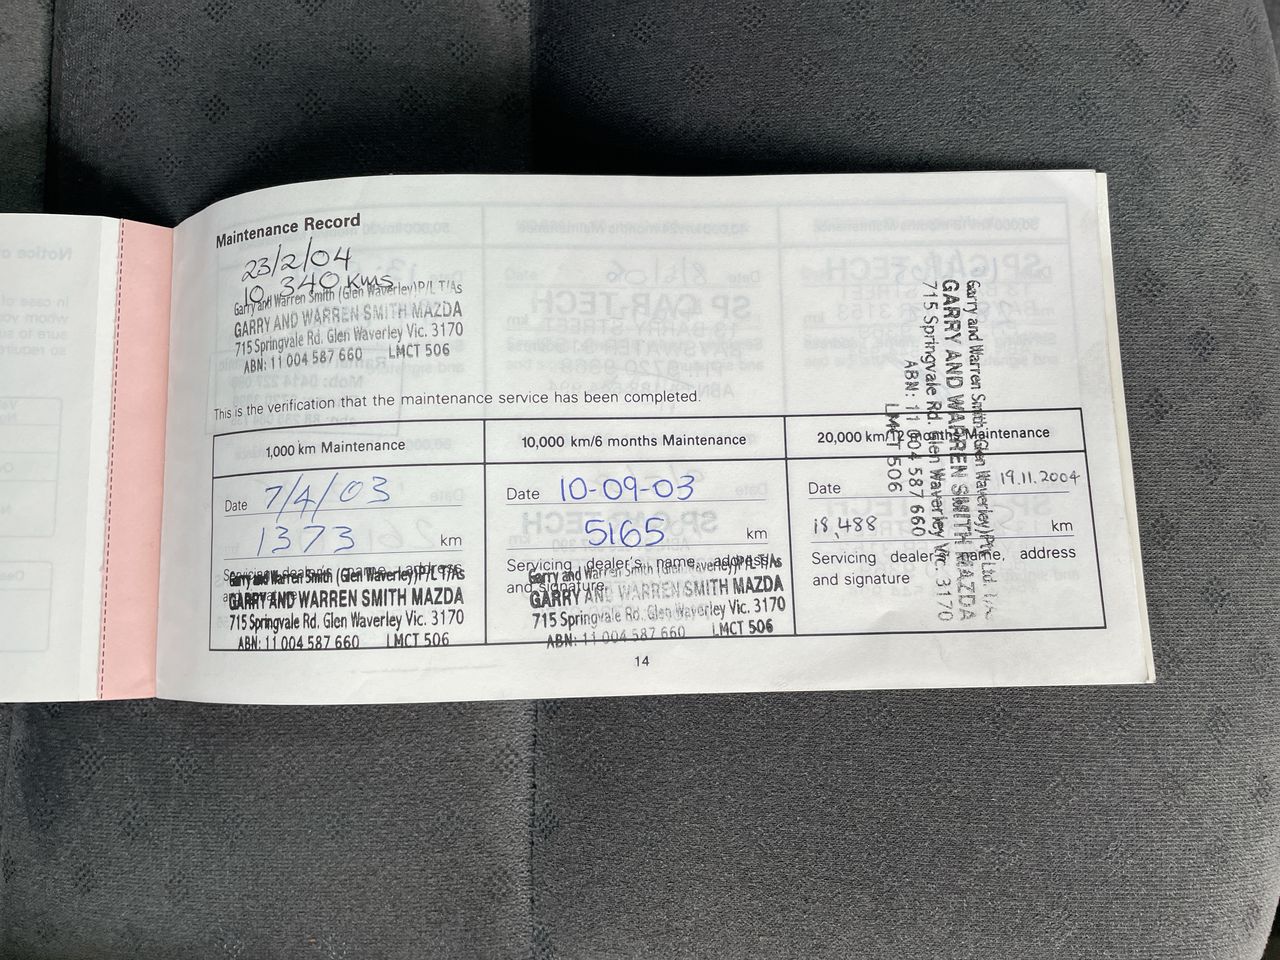 Maintenance Record
23/2/04
10 340 Kms
Garry and Warren Smith (Glen Waverley) P/L T/As
GARRY AND WARREN SMITH MAZDA
715 Springvale Rd. Glen Waverley Vic. 3170
ABN: 11 004 587 660 LMCT 506
This is the verification that the maintenance service has been completed.
1,000 km Maintenance
Date 7/4/03
1373 km
Servicing dealer's name, address
Garry and Warren Smith (Glen Waverley) P/L T/As
GARRY AND WARREN SMITH MAZDA
715 Springvale Rd. Glen Waverley Vic. 3170
ABN: 11 004 587 660 LMCT 506
10,000 km/6 months Maintenance
Date 10-09-03
5165 km
Servicing dealer's name, address
and signature
Garry and Warren Smith (Glen Waverley) P/L T/As
GARRY AND WARREN SMITH MAZDA
715 Springvale Rd. Glen Waverley Vic. 3170
ABN: 11 004 587 660 LMCT 506
20,000 km/12 months Maintenance
Date 19.11.2004
18,488 km
Servicing dealer's name, address
and signature
Garry and Warren Smith (Glen Waverley) P/L T/A
GARRY AND WARREN SMITH MAZDA
715 Springvale Rd. Glen Waverley Vic. 3170
ABN: 11 004 587 660
LMCT 506
14